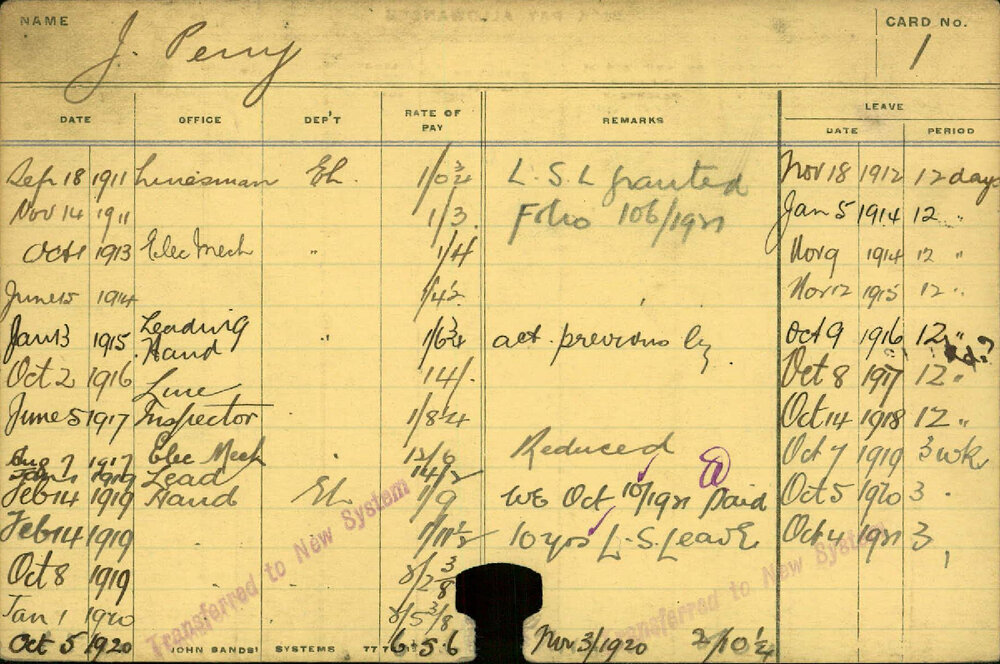 NAME
J. Perry
CARD No.
1
DATE OFFICE DEP'T RATE OF PAY REMARKS LEAVE
DATE PERIOD
Sep 18 1911 Linesman El. 1/0 3/4 L.S.L granted Nov 18 1912 12 days
Nov 14 1911 1/3 Folio 106/1921 Jan 5 1914 12 "
Oct 1 1913 Elec Mech " 1/4 Nov 9 1914 12 "
June 15 1914 1/4½ Nov 12 1915 12 "
Jan 13 1915 Leading Hand " 1/6¾ act. previously Oct 9 1916 12 "
Oct 2 1916 14/. Oct 8 1917 12 "
June 5 1917 Line Inspector 1/8¼ Oct 14 1918 12 "
Aug 7 1917 Elec Mech " 12/6 Reduced Oct 7 1919 3 wks
1919 Lead 14/2
Feb 14 1919 Hand El. 1/9 WE Oct 10/1921 Paid Oct 5 1920 3 "
Feb 14 1919 1/11½ 10 yrs L.S. Leave Oct 4 1921 3 "
Oct 8 1919 2/2 3/8
Jan 1 1920 2/5 3/8
Oct 5 1920 6.5.6 Nov 3/1920 2/10¼
Transferred to New System
Transferred to New System
JOHN SANDS' SYSTEMS